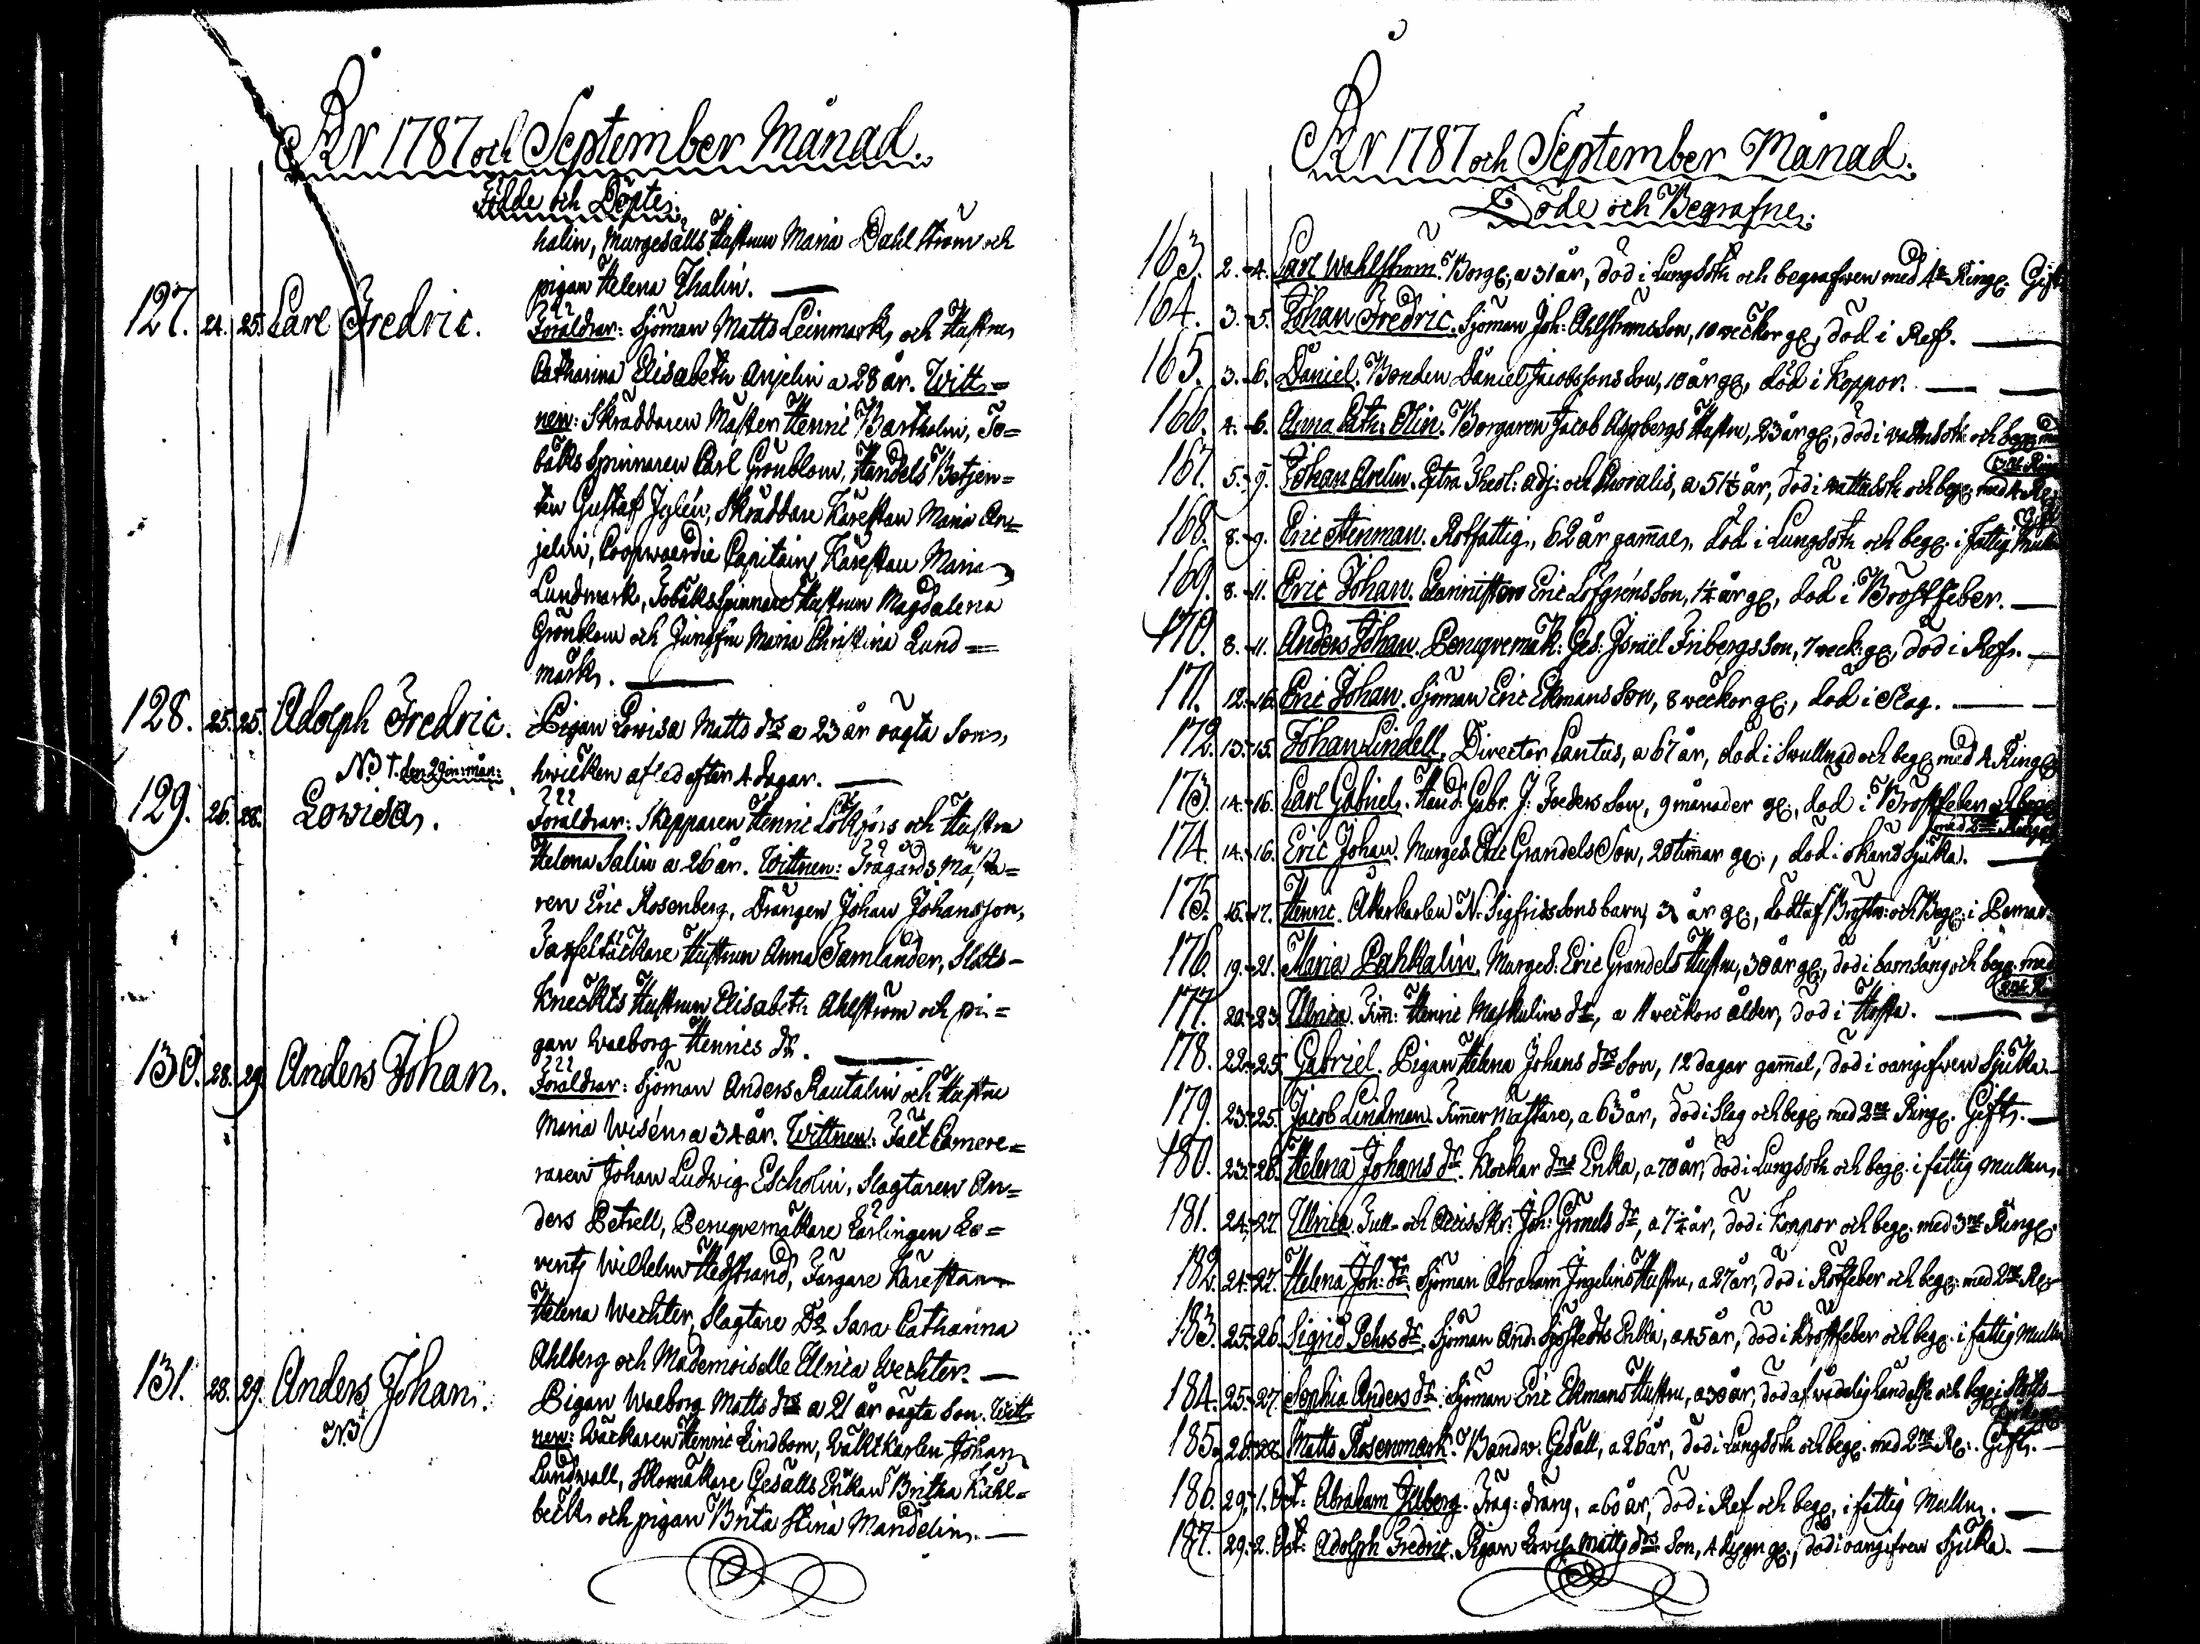 År 1787 och September Månad.
Födde och Döpte.
halin, Murgesälls Hustrun Maria Dahlström och
pigan Helena Thalin.
127. 24. 25. Carl Fredric. Föräldrar: Sjöman Matts Leinmark, och Hustru
Catharina Elisabeth Anjelin a 28 år. Witt=
nen: Skräddaren Mäster Henric Bartholin, To=
baks Spinnaren Carl Grönblom, Handels Betjen=
ten Gustaf Jglén, Skräddare Kärestan Maria An=
jelin, Coopwaerdie Capitains Kärestan Maria
Lundmark, Tobaks Spinnare Hustrun Magdalena
Grönblom och Jungfru Maria Christina Lund=
mark.
128. 25. 25. Adolph Fredric. Pigan Lowisa Matts dr a 23 år oägta Son,
N:B †. den 29 in: mån: hwilken afled efter 4 dagar.
129. 26. 28. Lowisa. Föräldrar: Skepparen Henric och Hustru
Helena Salin a 26 år. Wittnen: Trägårds Mästa=
ren Eric Rosenberg, Drängen Johan Johansson,
Taffeltäckare Hustrun Anna Tamlander, Slotts-
Kneckts Hustrun Elisabeth Ahlström och pi=
gan Walborg Henrics dr.
130. 28. 29. Anders Johan. Föräldrar: Sjöman Anders Rautalin och Hustru
Maria Wisén a 34 år. Wittnen: Fält Camere=
raren Johan Ludwig Escholin, Slagtaren An=
ders Petrell, Peruqvemakare Lärlingen Lo=
rentz Wilhelm Hedstrand, Färgare Kärestan
Helena Wechter, Slagtare Dr Sara Catharina
Ahlberg och Mademoiselle Ulrica Wechter.
131. 28. 29. Anders Johan. Pigan Walborg Matts dr a 21 år oägta Son. Witt
NB nen: Wäckaren Henric Lindbom, Wäktkarlen Johan
Lundwall, Skomakare Gesälls Enkan Britha Kahl=
beck, och pigan Brita Stina Mandelin.
År 1787 och September Månad.
Döde och Begrafne.
163. 2. 4. Carl Wahlström. Borg: a 31 år, död i Lungsot och begrafwen med 4 Ring: Gift
164. 3. 5. Johan Fredric. Sjöman Joh: Ahlströms Son, 10 weckor gl, död i Ref.
165. 3. 6. Daniel. Bonden Daniel Jacobssons Son, 10 år gl, död i Koppor.
166. 4. 6. Anna Cath: Olin. Borgaren Jacob Aspbergs Hustru, 23 år gl, död i wattusot och beg: med
Ring
167. 5. 9. Johan Arelin. Extra Theol: adj: och Choralis, a 51 år, död i wattusot och beg: med 4 R:
Gift
168. 8. 9. Eric Stenman. Rotfattig, 62 år gammal, död i Lungsot och beg: i fattig Mull
169. 8. 11. Eric Johan. Eric Löfgréns Son, 1 år gl, död i Bröstfeber.
170. 8. 11. Anders Johan. Peruqvemak: Ges: Israel Fribergs Son, 7 weck: gl, död i Ref.
171. 12. 16. Eric Johan. Sjöman Eric Ekmans Son, 8 weckor gl, död i Slag.
172. 13. 15. Johan Lindell. Director Cantus, a 67 år, död i Swullnad och beg: med 4 Ring:
173. 14. 16. Carl Gabriel. Hand: Gabr: J: Foeders Son, 9 månader gl, död i Bröstfeber och beg:
med 2 Ring:
174. 14. 16. Eric Johan. Murges: Eric Grandels Son, 20 timar gl, död i okänd Sjuka.
175. 15. 17. Henric. Åkarkarlen N: Sigfridssons barn, 3 år gl, död af Bröstw: och Beg: i Pemar.
176. 19. 21. Maria Pahkalin. Murges: Eric Grandels Hustru, 30 år gl, död i barnsäng och beg: med
Ri
177. 20. 23. Ulrica. Tim: Henric Maskulins dr, a 11 weckors ålder, död i Hosta.
178. 22. 25. Gabriel. Pigan Helena Johans dr Son, 12 dagar gammal, död i oangifwen Sjuka.
179. 23. 25. Jacob Lindman. Timer Mästare, a 63 år, död i Slag och beg: med 2 Ring: Gift.
180. 23. 28. Helena Johans dr. Klockar Enka, a 70 år, död i Lungsot och beg: i fattig Mullen.
181. 24. 27. Ulrica. Tull- och Accis Skr: Joh: Gronels dr, a 7 år, död i Koppor och beg: med 3 Ring:
182. 24. 27. Helena Joh: dr. Sjöman Abraham Ingelins Hustru, a 27 år, död i Rötfeber och beg: med 2 R:
183. 25. 26. Sigrid Pehrs dr. Sjöman And: Sjöstedts Enka, a 45 år, död i Bröstfeber och beg: i fattig Mullen
184. 25. 27. Sophia Anders dr. Sjöman Eric Ekmans Hustru, a 30 år, död af wådelig händelse och beg: i Slotts-
185. 26. 28. Matts Rosenmark. Bandw: Gesäll, a 26 år, död i Lungsot och beg: med 2 R: Gift.
186. 29. 1. Oct: Abraham Juberg. Träg: dräng, a 60 år, död i Ref och beg: i fattig Mullen.
187. 29. 2. Oct: Adolph Fredric. Pigan Lowisa Matts dr Son, 4 dagar gl, död i oangifwen Sjuka.